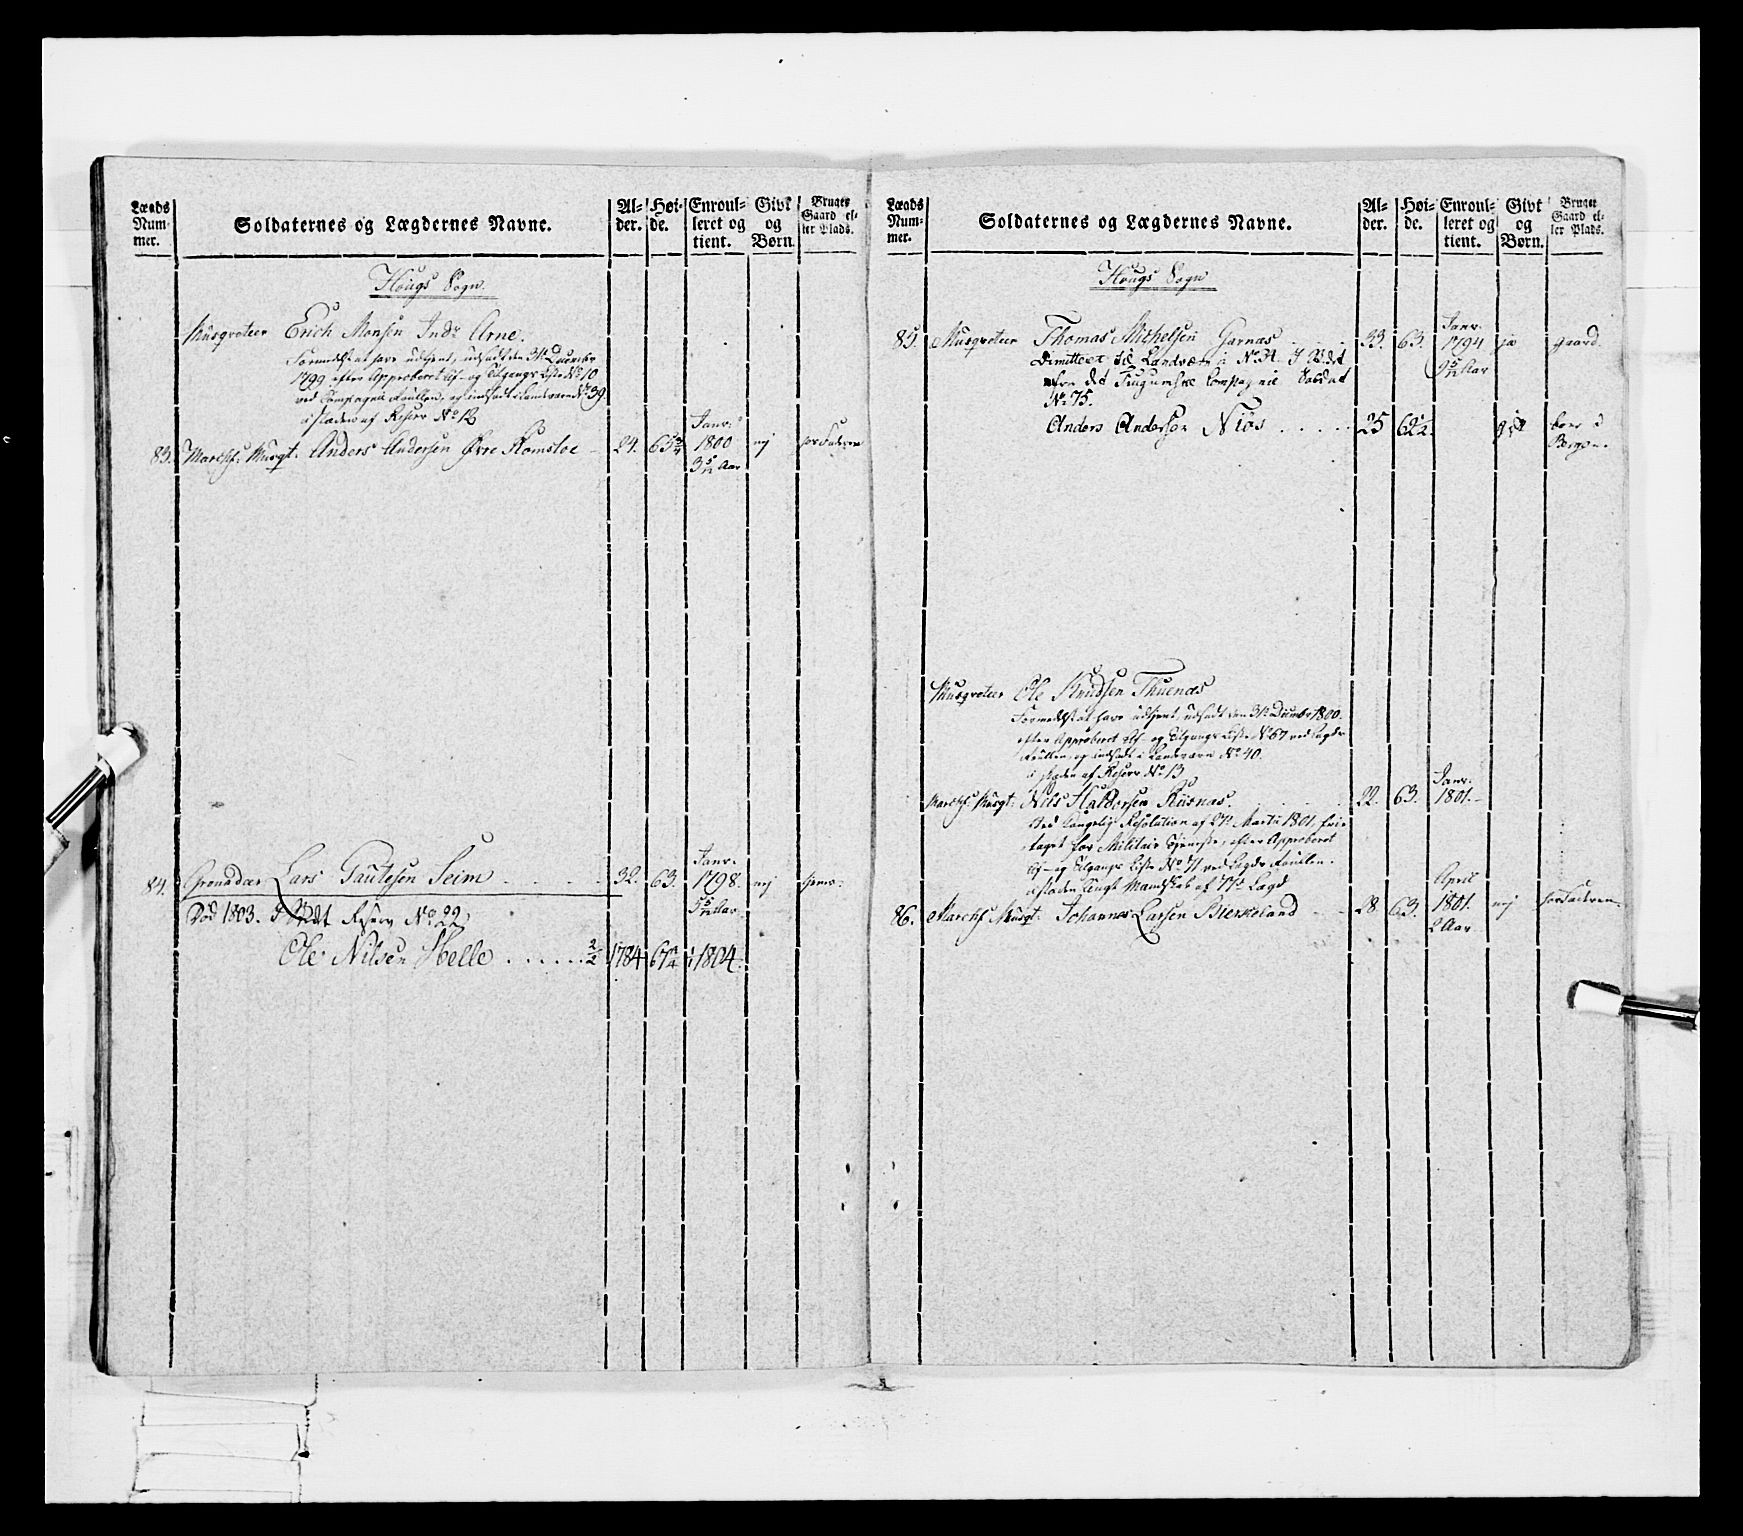 Lægds Nummer.
Soldaternes og Lægdernes Navne.
Alder.
Høide.
Enroulleret og tient.
Givt og Børn.
Bruger Gaard eller Plads.
Hougs Sogn.
Musqveteer Erich Monsen Indr Arne.
Formedelst at have udtient, udsadt den 31te Decembr
1799 efter Approberet Af- og Tilgangs Liste No 10
ved Compagnie Roullen, og indsadt i Landværn No 39.
i staden af Reserv No 12
83. Marchf: Musqt: Anders Andersen Øvre Romsloe 24. 65 3/4 Janr: 1800 3 5/12 Aar nej
84. Grenadeer Lars Gautesen Seim . . . . 32. 63. Janr. 1798. 5 5/12 Aar. nej
Død 1803. I Stedet Reserv No 22
Ole Nilsen Helle . . . . . . 2/2 1784 67 1/4 1804.
Lægds Nummer.
Soldaternes og Lægdernes Navne.
Alder.
Høide.
Enroulleret og tient.
Givt og Børn.
Bruger Gaard eller Plads.
Hougs Sogn
85. Musqveteer Thomas Michelsen Garnæs 33. 63. Janr. 1794 9 5/12 Aar ja gaard.
Dimitteret til Landværn No 34. I Stedet
fra det Compagnie Soldat
No 75.
Anders Andersen . . . . . 25 62 1/2. gift boer i Bergen.
Musqveteer Ole Knudsen Thuenæs
Formedelst at have udtient, udsadt den 31te Decembr 1800.
efter Approberet Af- og Tilgangs Liste No 67 ved Lægds
Roullen, og indsadt i Landværn No 40.
i staden af Reserv No 13
Marchf: Musqt: Nils Haldorsen Riisnæs. 22. 63. Janr. 1801.
Ved Kongelig Resolution af 27de Martii 1801. frie
taget for Militair Tieneste, efter Approberet
Af- og Tilgangs Liste No 71 ved Lægds Roullen.
i staden Mandskab af 77de Lægd
86. Marchf: Musqt: Johannes Larsen Bierkeland 28 63. April 1801. 2 Aar nej